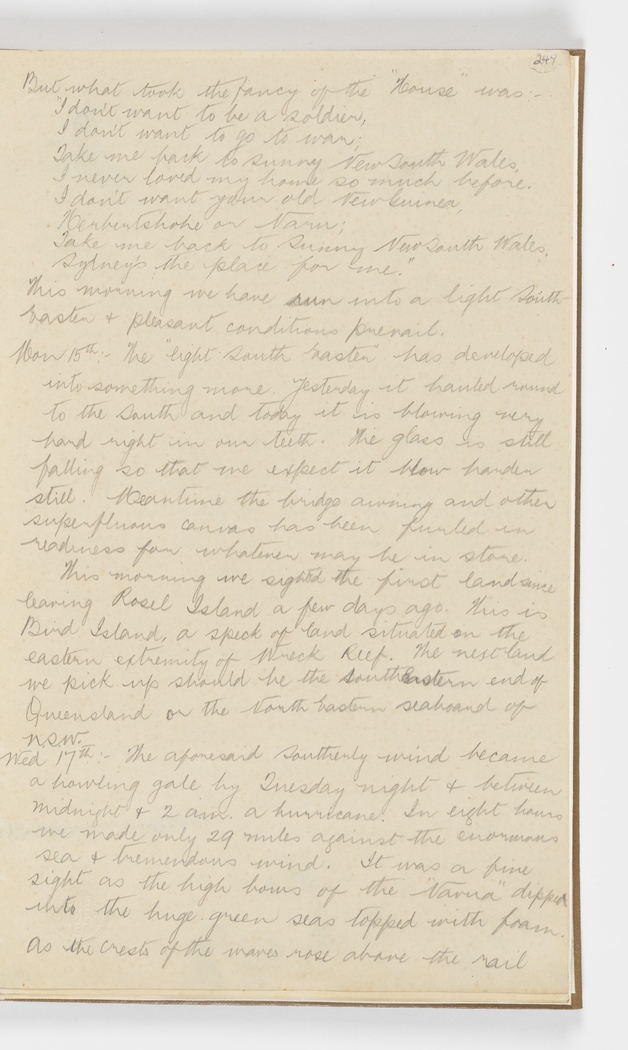 247
But what took the fancy of the "House" was:-
"I don't want to be a soldier,
I don't want to go to war;
Take me back to sunny New South Wales,
I never loved my home so much before.
I don't want your old New Guinea,
Herbertshohe or Naru;
Take me back to Sunny New South Wales,
Sydney's the place for me."
This morning we have run into a light South-
Easter & pleasant conditions prevail.
Mon 15th:- The "light South Easter" has developed
into something more. Yesterday it hauled round
to the South and today it is blowing very
hard right in our teeth. The glass is still
falling so that we expect it blow harder
still. Meantime the bridge awning and other
superfluous canvas has been furled in
readiness for whatever may be in store.
This morning we sighted the first land since
leaving Rosel Island a few days ago. This is
Bird Island, a speck of land situated on the
eastern extremity of Wreck Reef. The next land
we pick up should be the South Eastern end of
Queensland or the North Eastern seaboard of
N.S.W.
Wed 17th:- The aforesaid Southerly wind became
a howling gale by Tuesday night & between
midnight & 2 a.m. a hurricane. In eight hours
we made only 29 miles against the enormous
sea & tremendous wind. It was a fine
sight as the high bows of the "Navua" dipped
into the huge green seas topped with foam.
As the crests of the waves rose above the rail